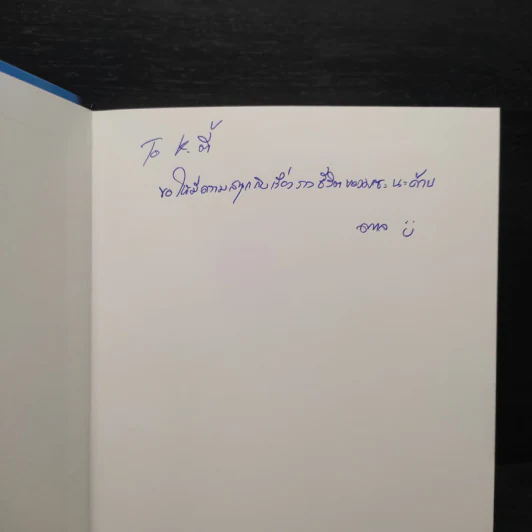 To K. ตี้
ขอให้มีความสุขกับเรื่องราวชีวิตของ นะครับ